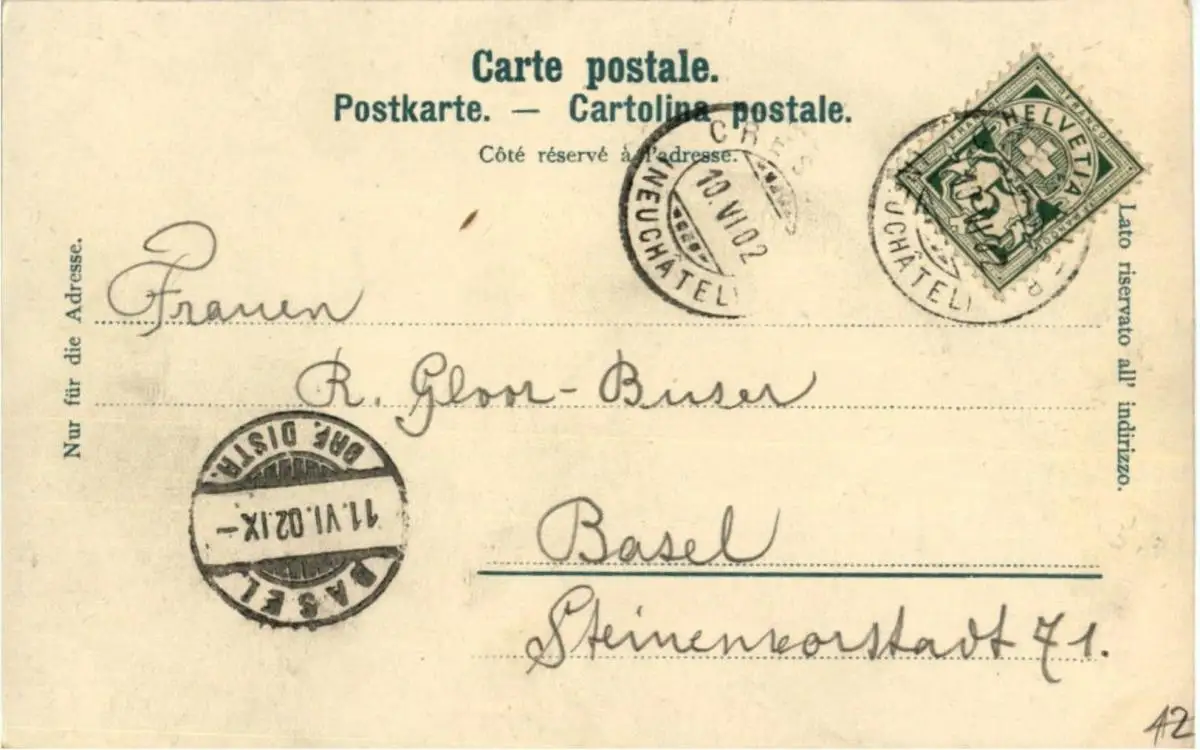 Carte postale.
Postkarte. — Cartolina postale.
Côté réservé à l'adresse.
Nur für die Adresse.
Lato riservato all' indirizzo.
HELVETIA
FRANCO
5
10.VI.02
(NEUCHÂTEL)
10.VI.02
UCHÂTEL)
Frauen
R. Gloor-Buser
BRF. DISTR.
11.VI.02.IX-
BASEL
Basel
Steinenvorstadt 71.
12